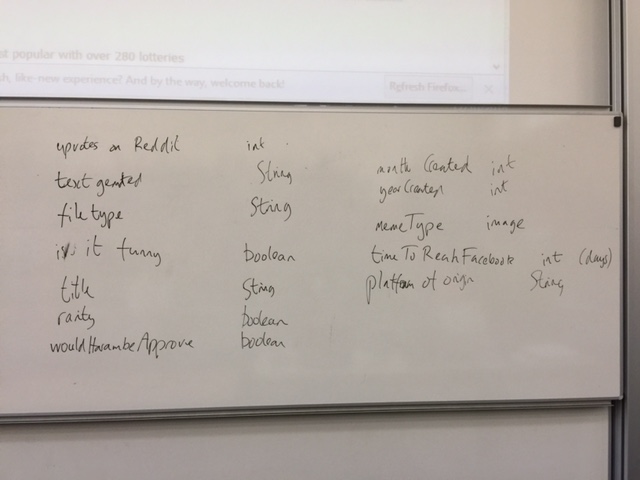 st popular with over 280 lotteries
sh, like-new experience? And by the way, welcome back!
Refresh Firefox...
upvotes on Reddit int
text String
filetype String
is it funny boolean
title String
rarity boolean
wouldHarambeApprove boolean
month Created int
yearCreated int
memeType image
timeToReahFacebook int (days)
platform of origin String